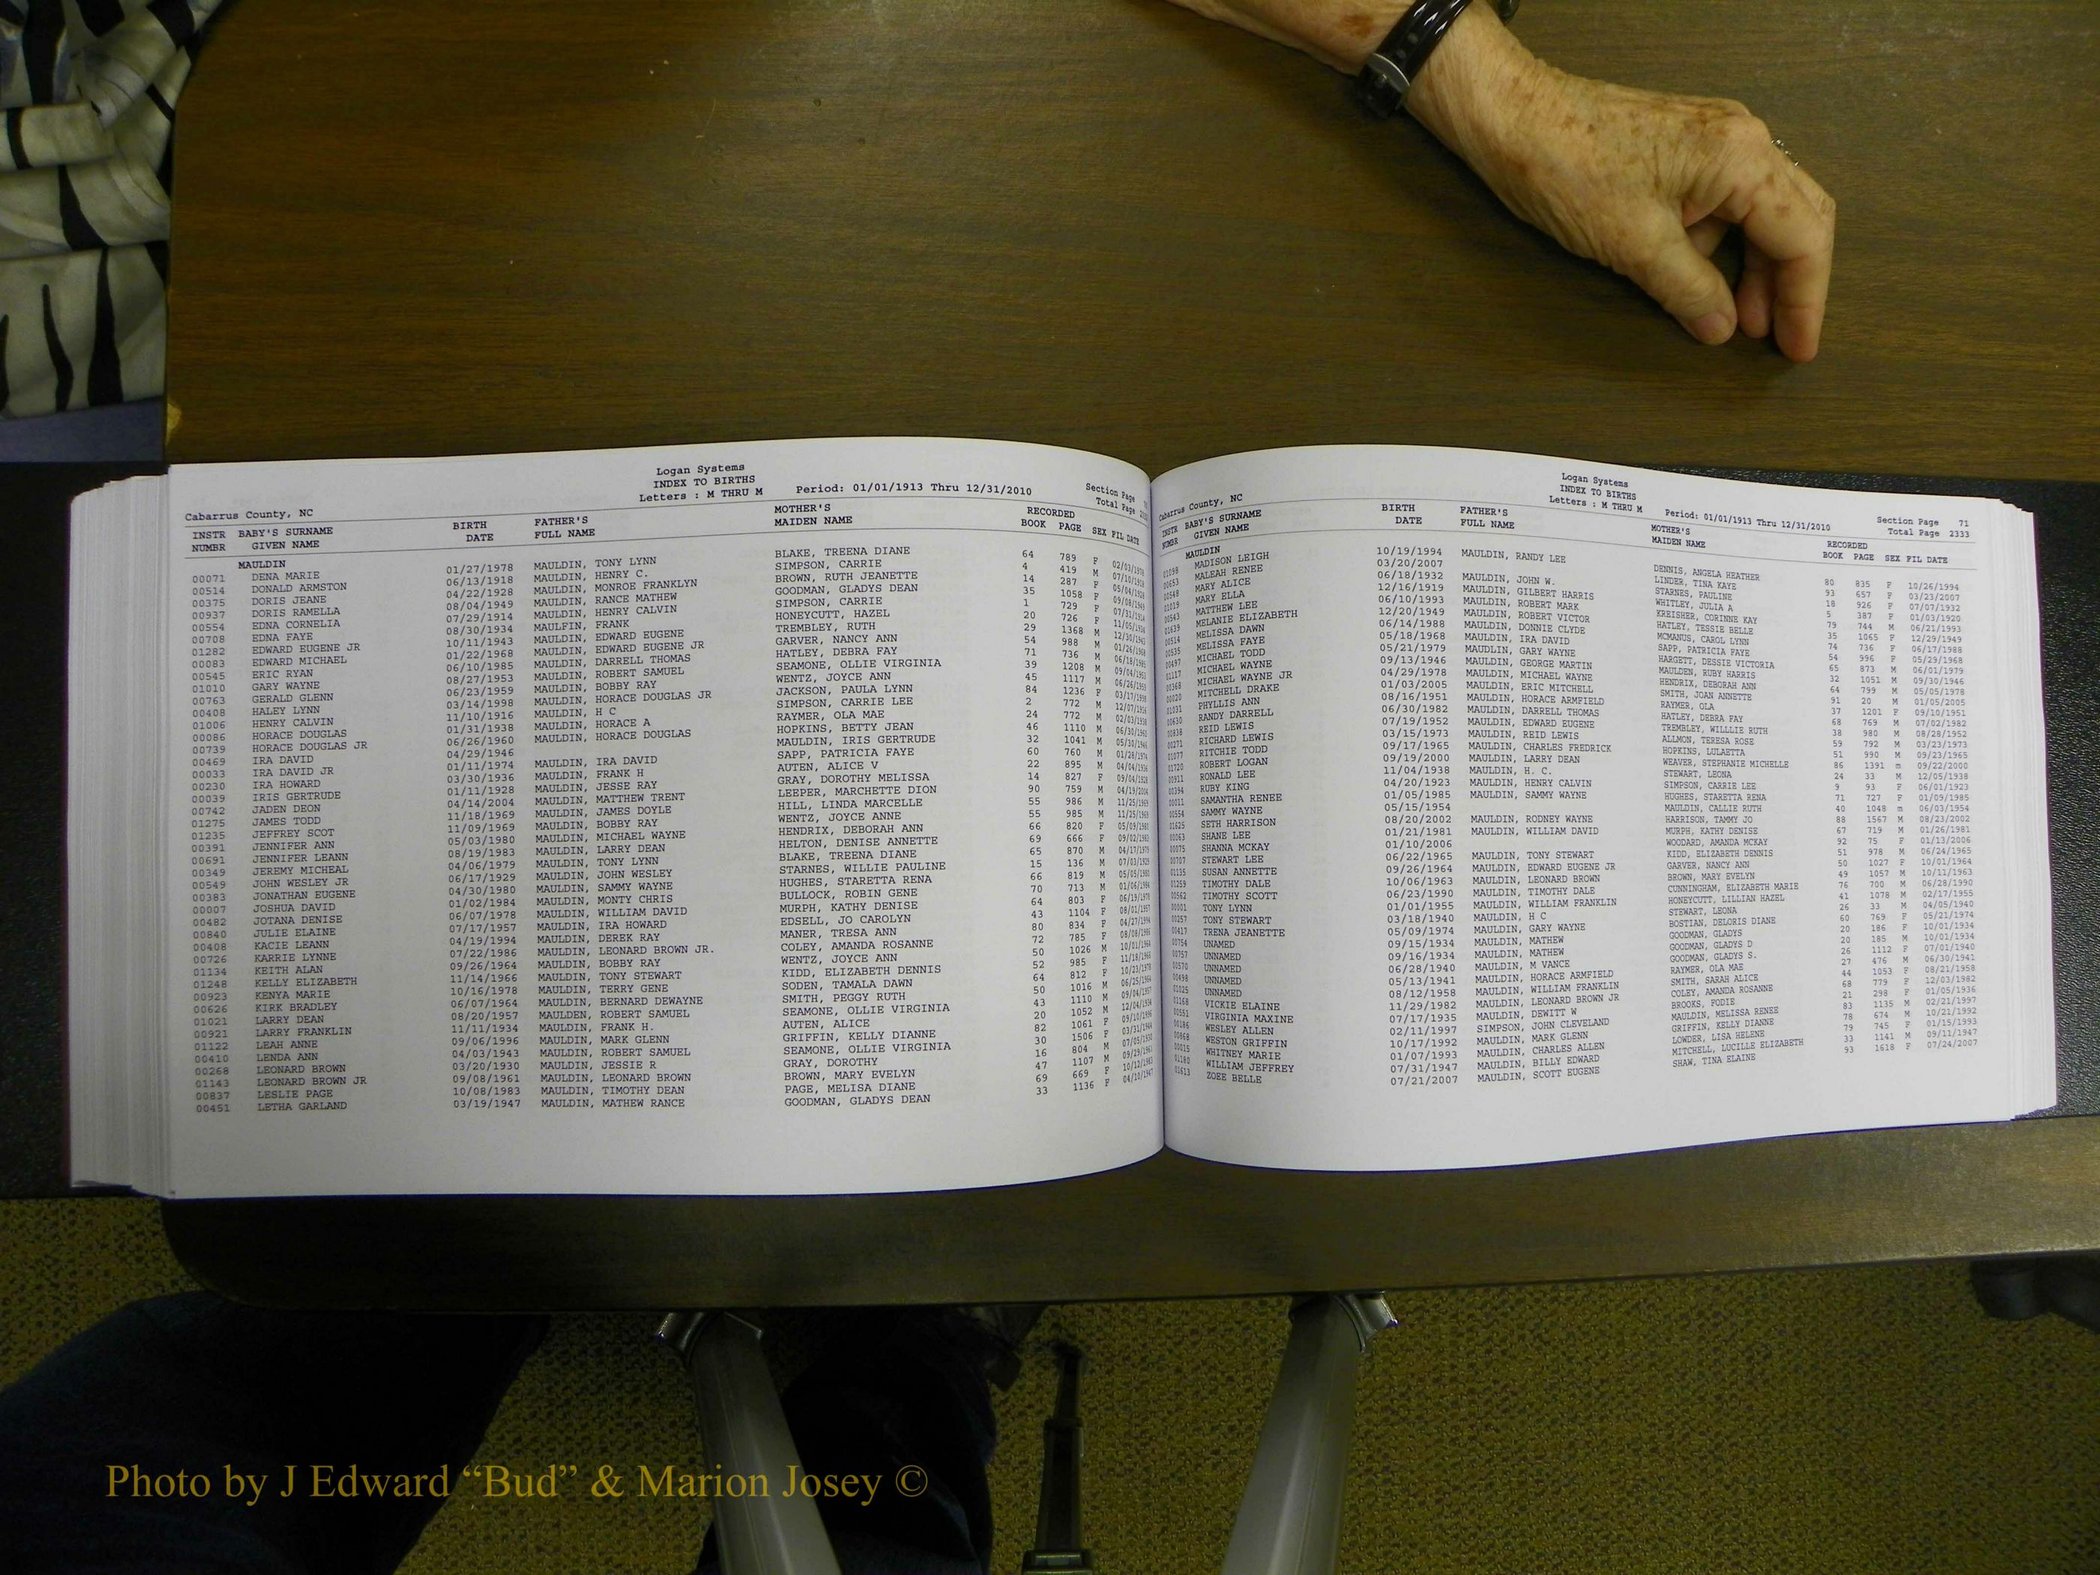 Logan Systems
INDEX TO BIRTHS
Letters : M THRU M Period: 01/01/1913 Thru 12/31/2010
Cabarrus County, NC Section Page
Total Page
INSTR BABY'S SURNAME BIRTH FATHER'S MOTHER'S RECORDED
NUMBR GIVEN NAME DATE FULL NAME MAIDEN NAME BOOK PAGE SEX FIL DATE
MAULDIN
00071 DENA MARIE 01/27/1978 MAULDIN, TONY LYNN BLAKE, TREENA DIANE 64 789 F 02/03/1978
00514 DONALD ARMSTON 06/13/1918 MAULDIN, HENRY C. SIMPSON, CARRIE 4 419 M 07/10/1918
00375 DORIS JEANE 04/22/1928 MAULDIN, MONROE FRANKLYN BROWN, RUTH JEANETTE 14 287 F 05/04/1928
00937 DORIS RAMELLA 08/04/1949 MAULDIN, RANCE MATHEW GOODMAN, GLADYS DEAN 35 1058 F
00554 EDNA CORNELIA 07/29/1914 MAULDIN, HENRY CALVIN SIMPSON, CARRIE 1 729 F
00708 EDNA FAYE 08/30/1934 MAULFIN, FRANK HONEYCUTT, HAZEL 20 726 F
01282 EDWARD EUGENE JR 10/11/1943 MAULDIN, EDWARD EUGENE TREMBLEY, RUTH 29 1368 M
00083 EDWARD MICHAEL 01/22/1968 MAULDIN, EDWARD EUGENE JR GARVER, NANCY ANN 54 988 M
00545 ERIC RYAN 06/10/1985 MAULDIN, DARRELL THOMAS HATLEY, DEBRA FAY 71 736 M
01010 GARY WAYNE 08/27/1953 MAULDIN, ROBERT SAMUEL SEAMONE, OLLIE VIRGINIA 39 1208 M
00763 GERALD GLENN 06/23/1959 MAULDIN, BOBBY RAY WENTZ, JOYCE ANN 45 1117 M
00408 HALEY LYNN 03/14/1998 MAULDIN, HORACE DOUGLAS JR JACKSON, PAULA LYNN 84 1236 F
01006 HENRY CALVIN 11/10/1916 MAULDIN, H C SIMPSON, CARRIE LEE 2 772 M
00086 HORACE DOUGLAS 01/31/1938 MAULDIN, HORACE A RAYMER, OLA MAE 24 772 M
00739 HORACE DOUGLAS JR 06/26/1960 MAULDIN, HORACE DOUGLAS HOPKINS, BETTY JEAN 46 1110 M
00469 IRA DAVID 04/29/1946 MAULDIN, IRIS GERTRUDE 32 1041 M
00033 IRA DAVID JR 01/11/1974 MAULDIN, IRA DAVID SAPP, PATRICIA FAYE 60 760 M
00230 IRA HOWARD 03/30/1936 MAULDIN, FRANK H AUTEN, ALICE V 22 895 M
00039 IRIS GERTRUDE 01/11/1928 MAULDIN, JESSE RAY GRAY, DOROTHY MELISSA 14 827 F
00742 JADEN DEON 04/14/2004 MAULDIN, MATTHEW TRENT LEEPER, MARCHETTE DION 90 759 M
01275 JAMES TODD 11/18/1969 MAULDIN, JAMES DOYLE HILL, LINDA MARCELLE 55 986 M
01235 JEFFREY SCOT 11/09/1969 MAULDIN, BOBBY RAY WENTZ, JOYCE ANNE 55 985 M
00391 JENNIFER ANN 05/03/1980 MAULDIN, MICHAEL WAYNE HENDRIX, DEBORAH ANN 66 820 F
00691 JENNIFER LEANN 08/19/1983 MAULDIN, LARRY DEAN HELTON, DENISE ANNETTE 69 666 F
00349 JEREMY MICHEAL 04/06/1979 MAULDIN, TONY LYNN BLAKE, TREENA DIANE 65 870 M
00549 JOHN WESLEY JR 06/17/1929 MAULDIN, JOHN WESLEY STARNES, WILLIE PAULINE 15 136 M
00383 JONATHAN EUGENE 04/30/1980 MAULDIN, SAMMY WAYNE HUGHES, STARETTA RENA 66 819 M
00007 JOSHUA DAVID 01/02/1984 MAULDIN, MONTY CHRIS BULLOCK, ROBIN GENE 70 713 M
00482 JOTANA DENISE 06/07/1978 MAULDIN, WILLIAM DAVID MURPH, KATHY DENISE 64 803 F
00840 JULIE ELAINE 07/17/1957 MAULDIN, IRA HOWARD EDSELL, JO CAROLYN 43 1104 F
00408 KACIE LEANN 04/19/1994 MAULDIN, DEREK RAY MANER, TRESA ANN 80 834 F
00726 KARRIE LYNNE 07/22/1986 MAULDIN, LEONARD BROWN JR. COLEY, AMANDA ROSANNE 72 785 F
01134 KEITH ALAN 09/26/1964 MAULDIN, BOBBY RAY WENTZ, JOYCE ANN 50 1026 M
01248 KELLY ELIZABETH 11/14/1966 MAULDIN, TONY STEWART KIDD, ELIZABETH DENNIS 52 985 F
00923 KENYA MARIE 10/16/1978 MAULDIN, TERRY GENE SODEN, TAMALA DAWN 64 812 F
00626 KIRK BRADLEY 06/07/1964 MAULDIN, BERNARD DEWAYNE SMITH, PEGGY RUTH 50 1016 M
01021 LARRY DEAN 08/20/1957 MAULDEN, ROBERT SAMUEL SEAMONE, OLLIE VIRGINIA 43 1110 M
00921 LARRY FRANKLIN 11/11/1934 MAULDIN, FRANK H. AUTEN, ALICE 20 1052 M
01122 LEAH ANNE 09/06/1996 MAULDIN, MARK GLENN GRIFFIN, KELLY DIANNE 82 1061 F
00410 LENDA ANN 04/03/1943 MAULDIN, ROBERT SAMUEL SEAMONE, OLLIE VIRGINIA 30 1506 F
00268 LEONARD BROWN 03/20/1930 MAULDIN, JESSIE R GRAY, DOROTHY 16 804 M
01143 LEONARD BROWN JR 09/08/1961 MAULDIN, LEONARD BROWN BROWN, MARY EVELYN 47 1107 M
00837 LESLIE PAGE 10/08/1983 MAULDIN, TIMOTHY DEAN PAGE, MELISA DIANE 69 669 F
00451 LETHA GARLAND 03/19/1947 MAULDIN, MATHEW RANCE GOODMAN, GLADYS DEAN 33 1136 F 04/10/1947
Logan Systems
INDEX TO BIRTHS
Letters : M THRU M Period: 01/01/1913 Thru 12/31/2010
Cabarrus County, NC Section Page 71
Total Page 2333
INSTR BABY'S SURNAME BIRTH FATHER'S MOTHER'S RECORDED
NUMBR GIVEN NAME DATE FULL NAME MAIDEN NAME BOOK PAGE SEX FIL DATE
MAULDIN
01098 MADISON LEIGH 10/19/1994 MAULDIN, RANDY LEE DENNIS, ANGELA HEATHER 80 835 F 10/26/1994
00653 MALEAH RENEE 03/20/2007 LINDER, TINA KAYE 93 657 F 03/23/2007
00548 MARY ALICE 06/18/1932 MAULDIN, JOHN W. STARNES, PAULINE 18 926 F 07/07/1932
01019 MARY ELLA 12/16/1919 MAULDIN, GILBERT HARRIS WHITLEY, JULIA A 5 387 F 01/03/1920
00543 MATTHEW LEE 06/10/1993 MAULDIN, ROBERT MARK KREISHER, CORINNE KAY 79 744 M 06/21/1993
01639 MELANIE ELIZABETH 12/20/1949 MAULDIN, ROBERT VICTOR HATLEY, TESSIE BELLE 35 1065 F 12/29/1949
00514 MELISSA DAWN 06/14/1988 MAULDIN, DONNIE CLYDE MCMANUS, CAROL LYNN 74 736 F 06/17/1988
00535 MELISSA FAYE 05/18/1968 MAULDIN, IRA DAVID SAPP, PATRICIA FAYE 54 996 F 05/29/1968
00497 MICHAEL TODD 05/21/1979 MAUDLIN, GARY WAYNE HARGETT, DESSIE VICTORIA 65 873 M 06/01/1979
01117 MICHAEL WAYNE 09/13/1946 MAULDIN, GEORGE MARTIN MAULDEN, RUBY HARRIS 32 1051 M 09/30/1946
00368 MICHAEL WAYNE JR 04/29/1978 MAULDIN, MICHAEL WAYNE HENDRIX, DEBORAH ANN 64 799 M 05/05/1978
00020 MITCHELL DRAKE 01/03/2005 MAULDIN, ERIC MITCHELL SMITH, JOAN ANNETTE 91 20 M 01/05/2005
01031 PHYLLIS ANN 08/16/1951 MAULDIN, HORACE ARMFIELD RAYMER, OLA 37 1201 F 09/10/1951
00630 RANDY DARRELL 06/30/1982 MAULDIN, DARRELL THOMAS HATLEY, DEBRA FAY 68 769 M 07/02/1982
00838 REID LEWIS 07/19/1952 MAULDIN, EDWARD EUGENE TREMBLEY, WILLLIE RUTH 38 980 M 08/28/1952
00271 RICHARD LEWIS 03/15/1973 MAULDIN, REID LEWIS ALLMON, TERESA ROSE 59 792 M 03/23/1973
01077 RITCHIE TODD 09/17/1965 MAULDIN, CHARLES FREDRICK HOPKINS, LULAETTA 51 990 M 09/23/1965
01720 ROBERT LOGAN 09/19/2000 MAULDIN, LARRY DEAN WEAVER, STEPHANIE MICHELLE 86 1391 m 09/22/2000
00911 RONALD LEE 11/04/1938 MAULDIN, H. C. STEWART, LEONA 24 33 M 12/05/1938
00394 RUBY KING 04/20/1923 MAULDIN, HENRY CALVIN SIMPSON, CARRIE LEE 9 93 F 06/01/1923
00011 SAMANTHA RENEE 01/05/1985 MAULDIN, SAMMY WAYNE HUGHES, STARETTA RENA 71 727 F 01/09/1985
00554 SAMMY WAYNE 05/15/1954 MAULDIN, CALLIE RUTH 40 1048 m 06/03/1954
01625 SETH HARRISON 08/20/2002 MAULDIN, RODNEY WAYNE HARRISON, TAMMY JO 88 1567 M 08/23/2002
00063 SHANE LEE 01/21/1981 MAULDIN, WILLIAM DAVID MURPH, KATHY DENISE 67 719 M 01/26/1981
00075 SHANNA MCKAY 01/10/2006 WOODARD, AMANDA MCKAY 92 75 F 01/13/2006
00707 STEWART LEE 06/22/1965 MAULDIN, TONY STEWART KIDD, ELIZABETH DENNIS 51 978 M 06/24/1965
01135 SUSAN ANNETTE 09/26/1964 MAULDIN, EDWARD EUGENE JR GARVER, NANCY ANN 50 1027 F 10/01/1964
01259 TIMOTHY DALE 10/06/1963 MAULDIN, LEONARD BROWN BROWN, MARY EVELYN 49 1057 M 10/11/1963
00562 TIMOTHY SCOTT 06/23/1990 MAULDIN, TIMOTHY DALE CUNNINGHAM, ELIZABETH MARIE 76 700 M 06/28/1990
00101 TONY LYNN 01/01/1955 MAULDIN, WILLIAM FRANKLIN HONEYCUTT, LILLIAN HAZEL 41 1078 M 02/17/1955
00257 TONY STEWART 03/18/1940 MAULDIN, H C STEWART, LEONA 26 33 M 04/05/1940
00417 TRENA JEANETTE 05/09/1974 MAULDIN, GARY WAYNE BOSTIAN, DELORIS DIANE 60 769 F 05/21/1974
00754 UNAMED 09/15/1934 MAULDIN, MATHEW GOODMAN, GLADYS 20 186 F 10/01/1934
00757 UNNAMED 09/16/1934 MAULDIN, MATHEW GOODMAN, GLADYS D 20 185 M 10/01/1934
00570 UNNAMED 06/28/1940 MAULDIN, M VANCE GOODMAN, GLADYS S. 26 1112 F 07/01/1940
00498 UNNAMED 05/13/1941 MAULDIN, HORACE ARMFIELD RAYMER, OLA MAE 27 476 M 06/30/1941
01025 UNNAMED 08/12/1958 MAULDIN, WILLIAM FRANKLIN SMITH, SARAH ALICE 44 1053 F 08/21/1958
01168 VICKIE ELAINE 11/29/1982 MAULDIN, LEONARD BROWN JR COLEY, AMANDA ROSANNE 68 779 F 12/03/1982
00551 VIRGINIA MAXINE 07/17/1935 MAULDIN, DEWITT W BROOKS, FODIE 21 298 F 01/05/1936
00186 WESLEY ALLEN 02/11/1997 SIMPSON, JOHN CLEVELAND MAULDIN, MELISSA RENEE 83 1135 M 02/21/1997
00968 WESTON GRIFFIN 10/17/1992 MAULDIN, MARK GLENN GRIFFIN, KELLY DIANNE 78 674 M 10/21/1992
00015 WHITNEY MARIE 01/07/1993 MAULDIN, CHARLES ALLEN LOWDER, LISA HELENE 79 745 F 01/15/1993
01180 WILLIAM JEFFREY 07/31/1947 MAULDIN, BILLY EDWARD MITCHELL, LUCILLE ELIZABETH 33 1141 M 09/11/1947
01613 ZOEE BELLE 07/21/2007 MAULDIN, SCOTT EUGENE SHAW, TINA ELAINE 93 1618 F 07/24/2007
Photo by J Edward “Bud” & Marion Josey ©